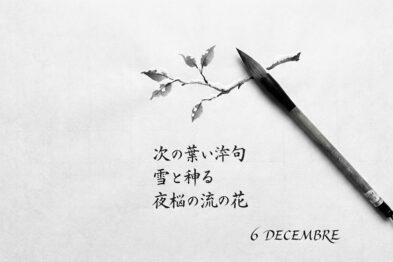 次の葉い滓句
雪と种る
夜桜の流の花
6 DECEMBRE